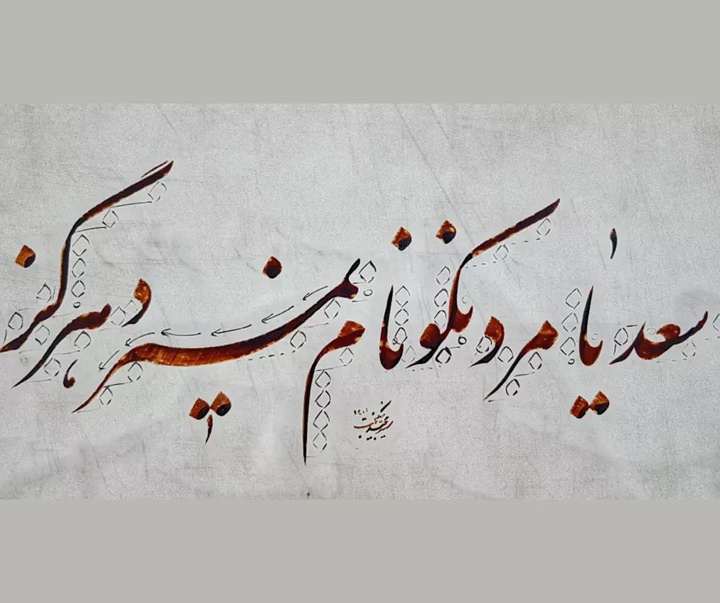 سعدیا مرد نکونام نمیرد هرگز